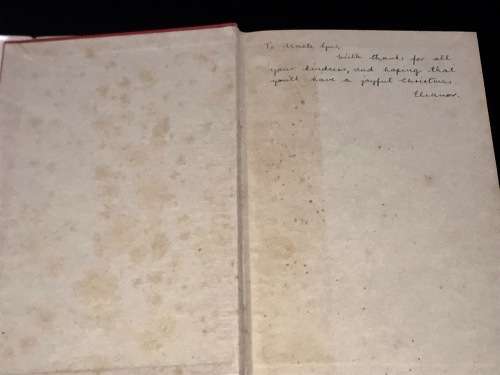 To Uncle
With thanks for all
your kindness, and hoping that
you'll have a joyful Christmas.
Eleanor.